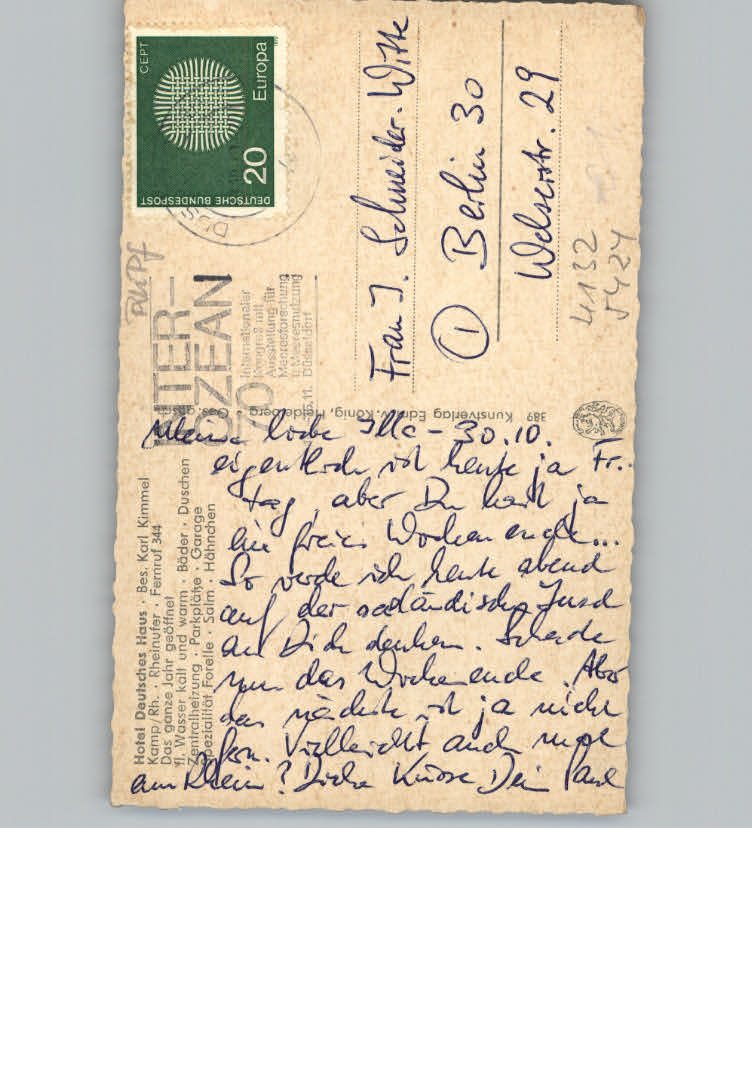 Meine liebe Ille – 30.10.
eigentlich ist heute ja Frei-
tag, aber Du hast ja
ein freies Wochenende...
So werde ich heute abend
auf der
an Dich denken. Schade
nur das Wochenende. Aber
das nächste ist ja nicht
fern. Vielleicht auch mal
am Rhein? Dicke Küsse Dein
Frau I. Schneider-Witte
1 Berlin 30
Welserstr. 29
4132
5424
Hotel Deutsches Haus · Bes. Karl Kimmel
Kamp/Rh. · Rheinufer · Fernruf 344
Das ganze Jahr geöffnet
fl. Wasser kalt und warm · Bäder · Duschen
Zentralheizung · Parkplätze · Garage
Spezialität Forelle · Salm · Hähnchen
389 Kunstverlag Edm. v. König, Heidelberg · Ges. gesch.
INTER-
OZEAN
70
Internationaler
Kongreß mit
Ausstellung für
Meeresforschung
u. Meeresnutzung
Düsseldorf
CEPT
Europa
20
DEUTSCHE BUNDESPOST